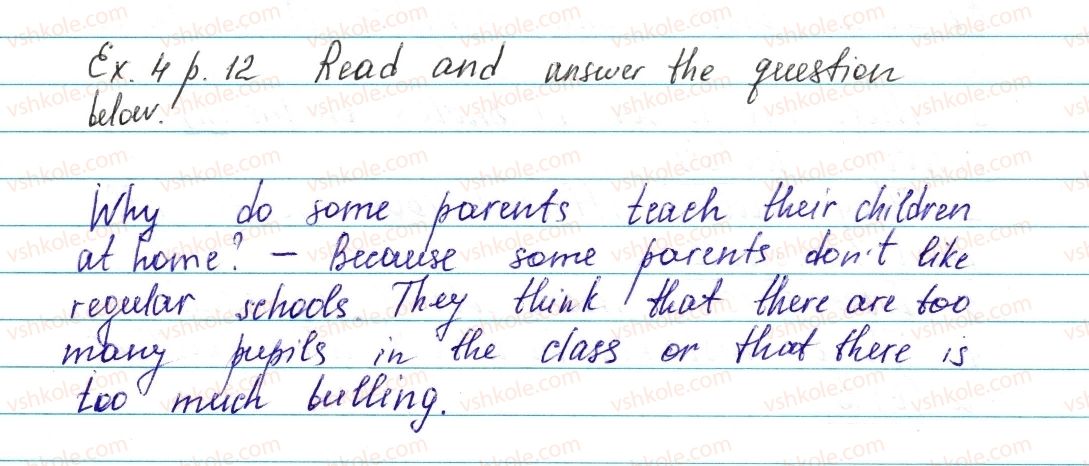 Ex. 4 p. 12 Read and answer the question
below.
Why do some parents teach their children
at home? – Because some parents don't like
regular schools. They think that there are too
many pupils in the class or that there is
too much bulling.